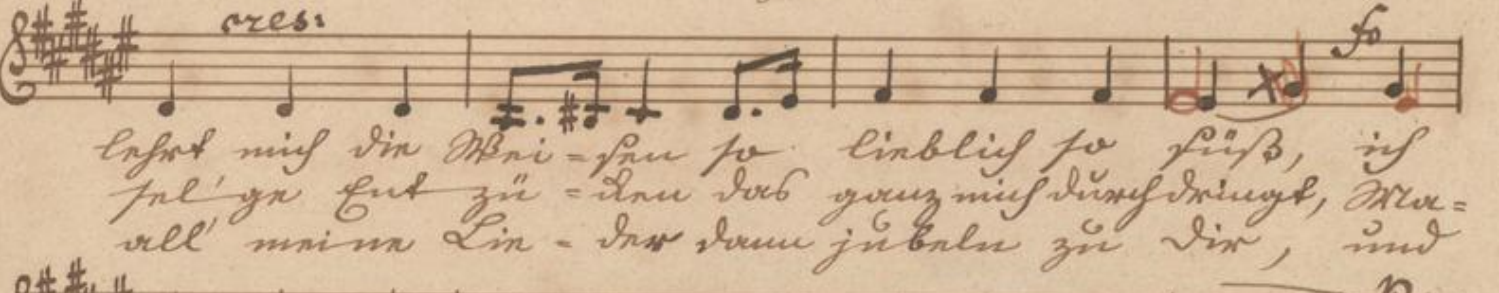 cres:
fo
lehrt mich die Wei-sen so lieblich so süß, ich
sel'ge Ent zü-cken das ganz mich durchdringt, Ma-
all' meine Lie-der dann jubeln zu Dir, und